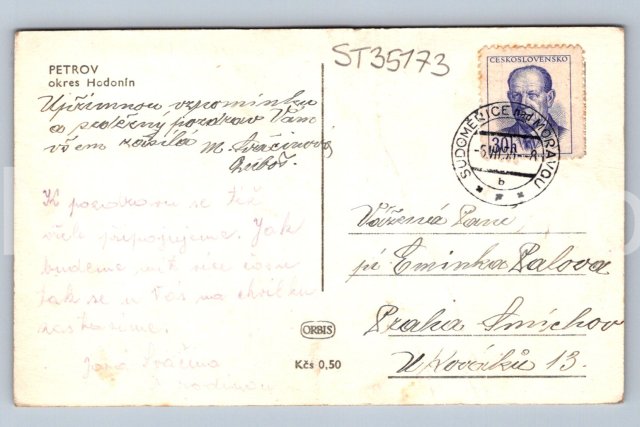 PETROV
okres Hodonín
ST35173
ČESKOSLOVENSKO
30h
SUDOMĚŘICE nad MORAVOU
b
Upřímnou vzpomínku
a srdečný pozdrav Vám
všem zasílá M. Sváčinová
Luboš.
K pozdravu se též
všichni připojujeme. Jak
budeme mít více času
tak se u Vás na chvilku
zastavíme.
Jana Sváčina
s rodinou
Vážená Paní
pí Eminka Palová
Praha Smíchov
U Kovářků 13.
ORBIS
Kčs 0,50